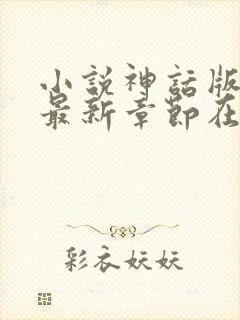 小説神話版
最新章節在
彩衣妖妖